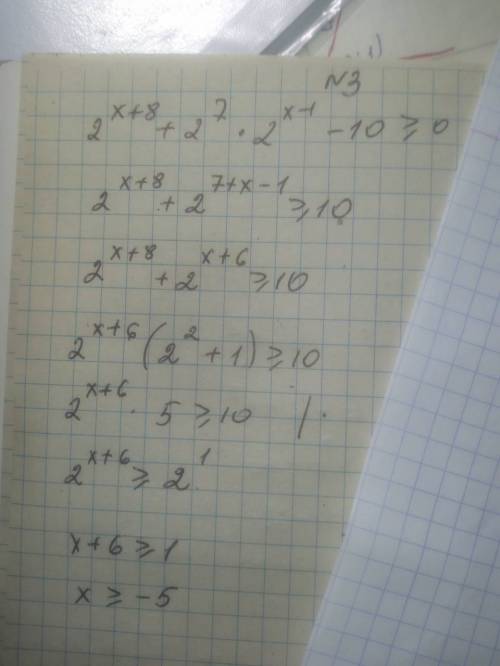 N3
2^{x+8} + 2^7 · 2^{x-1} - 10 ≥ 0
2^{x+8} + 2^{7+x-1} ≥ 10
2^{x+8} + 2^{x+6} ≥ 10
2^{x+6} (2^2 + 1) ≥ 10
2^{x+6} · 5 ≥ 10 | ·
2^{x+6} ≥ 2^1
x+6 ≥ 1
x ≥ -5